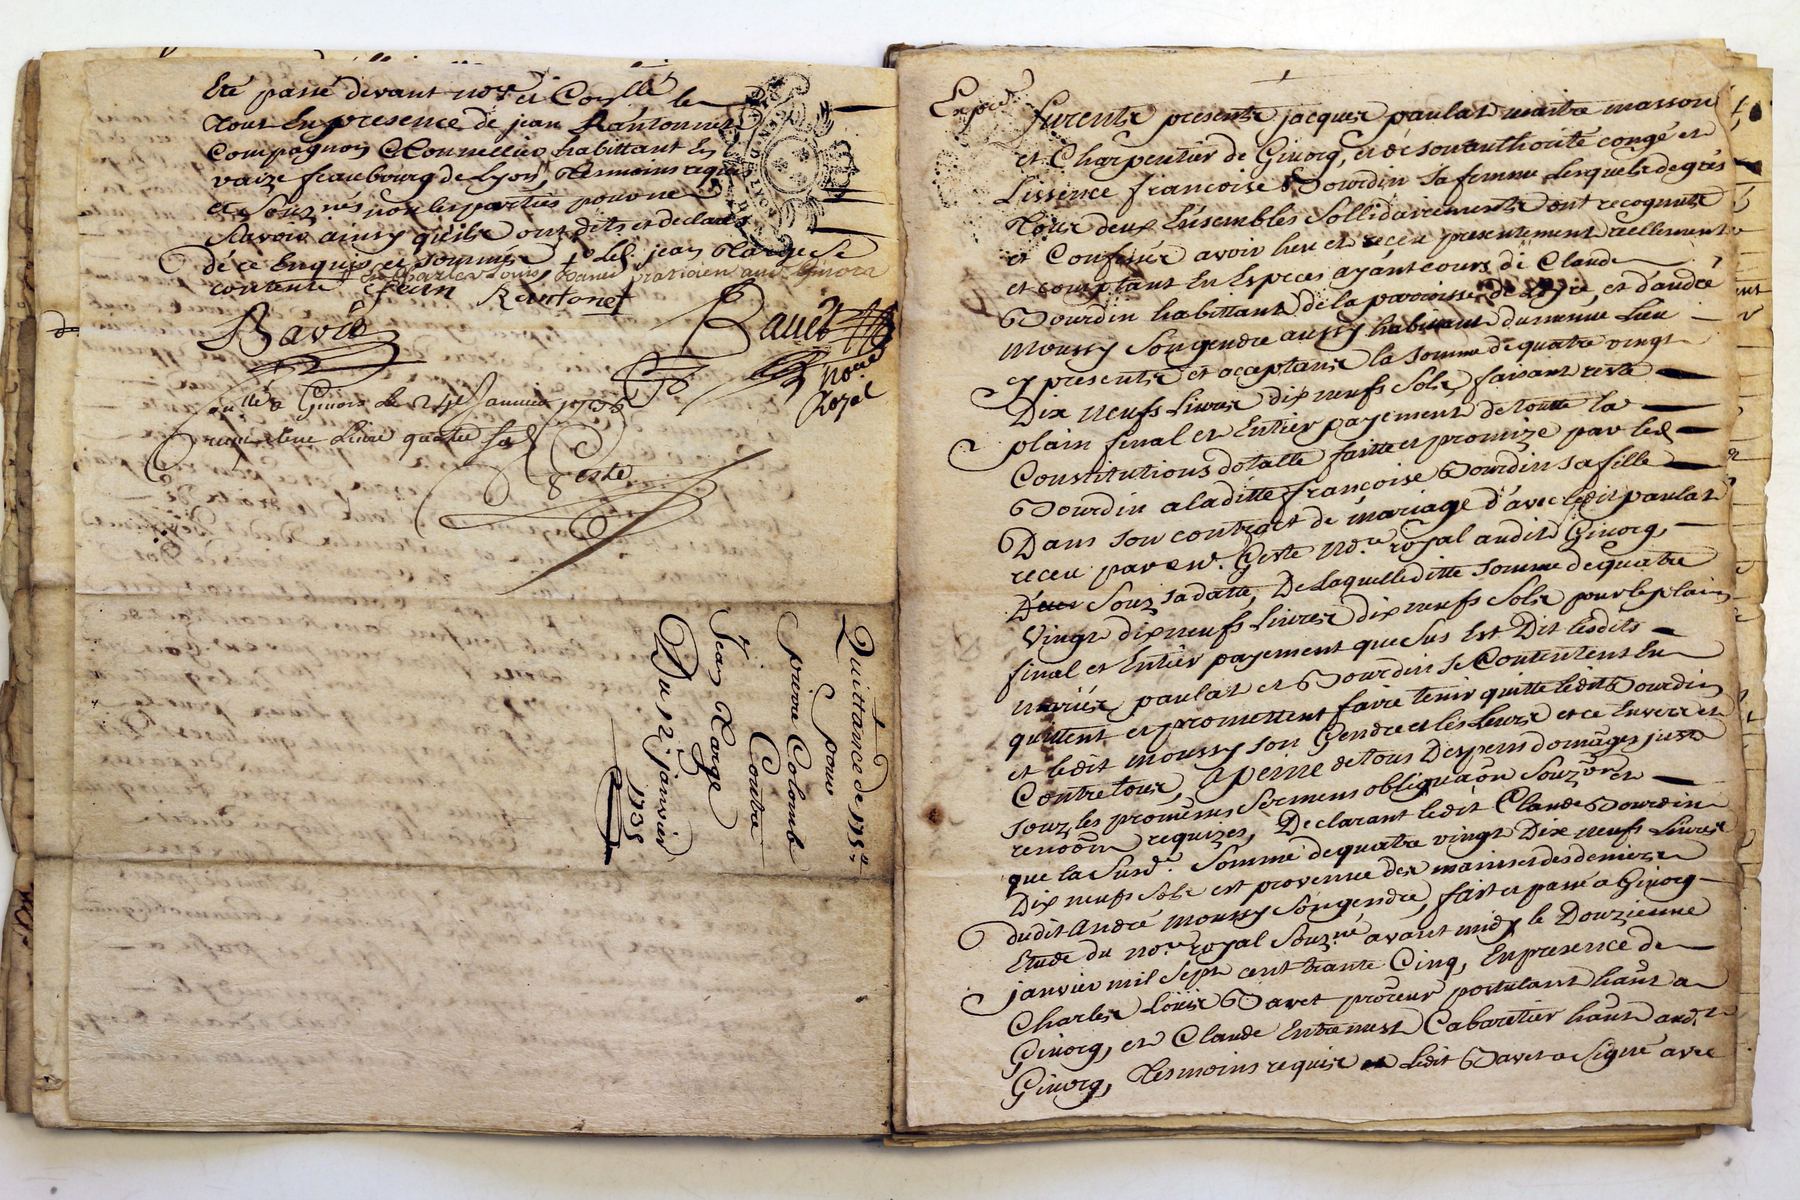 Eté passé devant no.re et Coglle le
tout En presence de jean Rantonnet
Compagnon Tonnellier habittant En
vaize feaubourg de Lyon, Tesmoins requis
et Souznés non les parties pour ne
Scavoir ainsy qu'ils ont dits et declarés
de ce Enquis et sommés led. jean Targe se
contente
jean Rantonet
Bavet
Bavet
no.re Royal
a Givors Le 24e Janvier 1735
une Livre quatre sols
Geste
Quittance de 175ll
pour
prieve Colombe
Contre
Jean Targe
Du 12e janvier
1735
Expié
furent presents jacques paulat maitre masson
et Charpentier de Givorg, et de son authorité congé et
Lissence francoise Bourdin sa femme Lesquels de grés
Tous deux Ensembles Sollidairements ont recognuts
et Confessé avoir heu et receu presentement reellement
et comptant En Especes ayant cours de Claude
Bourdin habittant de la parroisse de et d'andré
moussy Son gendre aussy habitant du meme Lieu
cy presents et acceptants la somme de quatre vingt
Dix neufs Livres dix neufs Sols, faisant reste
plain final et Entier payement de toutte la
Constitutions dotalle faitte et promize par led.
Bourdin a laditte francoise Bourdin sa fille
Dans son contract de mariage d'avec ledit paulat
receu par me. Geste No.re royal audit Givorg,
Souz sa datte, De Laquelleditte somme de quatre
Vingt dix neufs Livres dix neufs Sols pour le plain
final et Entier payement que Sus Est Dit lesdits
mariés paulat et Bourdin se Contentent En
quittent et promettent faire tenir quitte ledit Bourdin
et ledit moussy son Gendre et les Leurs et ce Envers et
Contre tous, a peine de tous Despens domages jnsts
souz les promêses sermens obligãon souzõn et
renoõn requizes, Declarant ledit Claude Bourdin
que la Susd.e Somme de quatre vingt Dix neufs Livres
Dix neufs Sols est provenue des mains et des deniers
dudit André moussy Son gendre, fait et passé a Givorg
Etude du no.re royal Souz.né avant midy le Douzieme
janvier mil Sept cent trante Cinq, En presence de
Charles Loüis Bavet procreur postulant habt a
Givorg, et Claude Entremest Cabaretier habt aud.t
Givorg, Tesmoins requis Ledit Bavet a Signé avec